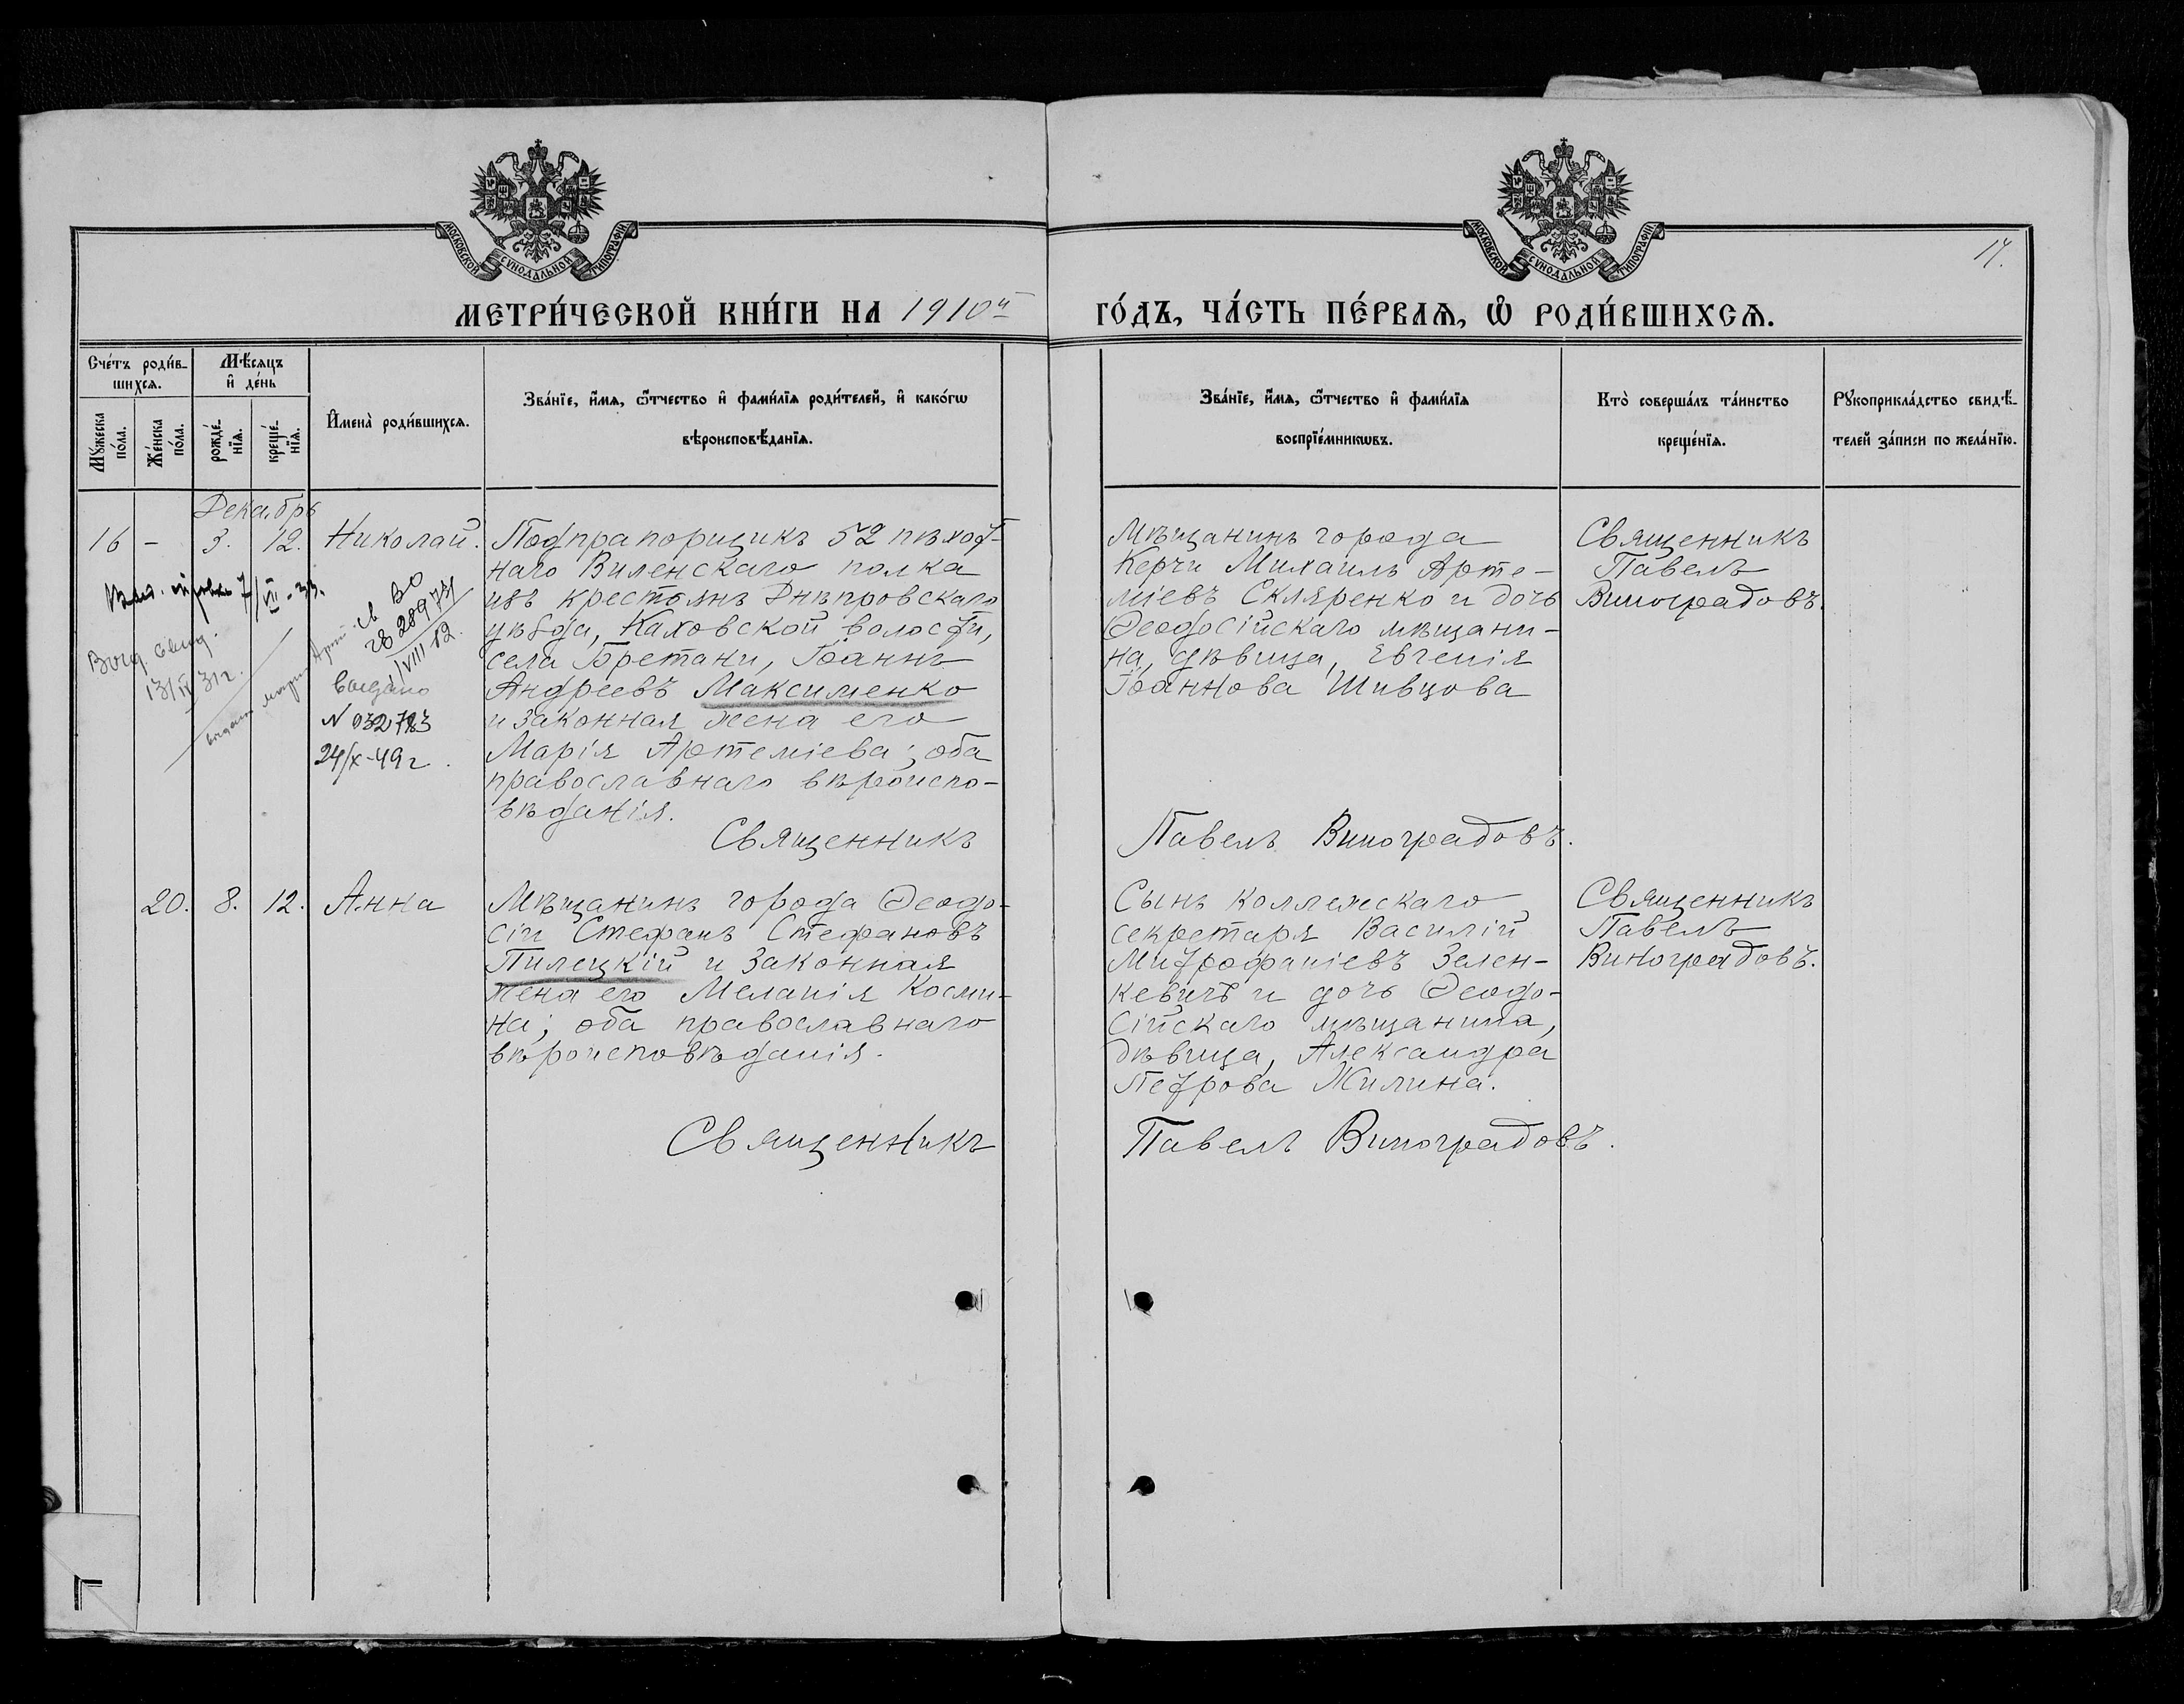 МОСКОВСКОЙ СУНОДАЛЬНОЙ ТИПОГРАФІИ
МОСКОВСКОЙ СУНОДАЛЬНОЙ ТИПОГРАФІИ
17.
МЕТРИ́ЧЕСКОЙ КНИ́ГИ НА 1910й ГО́ДЪ, ЧА́СТЬ ПЕ́РВАѦ, Ѽ РОДИ́ВШИХСѦ.
Сче́тъ роди́в-
шихся.
Мѣ́сяцъ
и҆ де́нь
Мꙋ́жеска
по́ла.
Же́нска
по́ла.
рожде́-
нїѧ.
креще́-
нїѧ.
И҆мена̀ роди́вшихсѧ.
Зва́нїе, и҆́мѧ, ѻ҆́тчество и҆ фами́лїѧ роди́телей, и҆ како́гѡ
вѣроисповѣ́данїѧ.
Зва́нїе, и҆́мѧ, ѻ҆́тчество и҆ фами́лїѧ
воспрїе́мникѡвъ.
Кто̀ соверша́лъ та́инство
креще́нїѧ.
Рꙋкоприкла́дство свидѣ́-
телей за́писи по жела́нїю.
Декабрь
16 - 3. 12. Николай.
Подпрапорщикъ 52 пѣхот-
наго Виленскаго полка
изъ крестьянъ Днѣпровскаго
уѣзда, Каховской волости,
села Бретани, Іоаннъ
Андреевъ Максименко
и законная жена его
Марія Артеміева; оба
православнаго вѣроиспо-
вѣданія.
Священникъ
Мѣщанинъ города
Керчи Михаилъ Арте-
міевъ Скляренко и дочь
Ѳеодосійскаго мѣщани-
на, дѣвица, Евгенія
Іоаннова Шивцова
Павелъ Виноградовъ.
Священникъ
Павелъ
Виноградовъ.
7/VII-33.
13/IV 31г.
св ВО
28 28973
1/VIII 12.
выдано
N 032783
24/X-49г.
20. 8. 12. Анна
Мѣщанинъ города Ѳеодо-
сіи Стефанъ Стефановъ
Пилецкій и законная
жена его Меланія Косми-
на; оба православнаго
вѣроисповѣданія.
Священникъ
Сынъ коллежскаго
секретаря Василій
Митрофаніевъ Зелен-
кевичъ и дочь Ѳеодо-
сійскаго мѣщанина,
дѣвица, Александра
Петрова Жилина.
Павелъ Виноградовъ.
Священникъ
Павелъ
Виноградовъ.